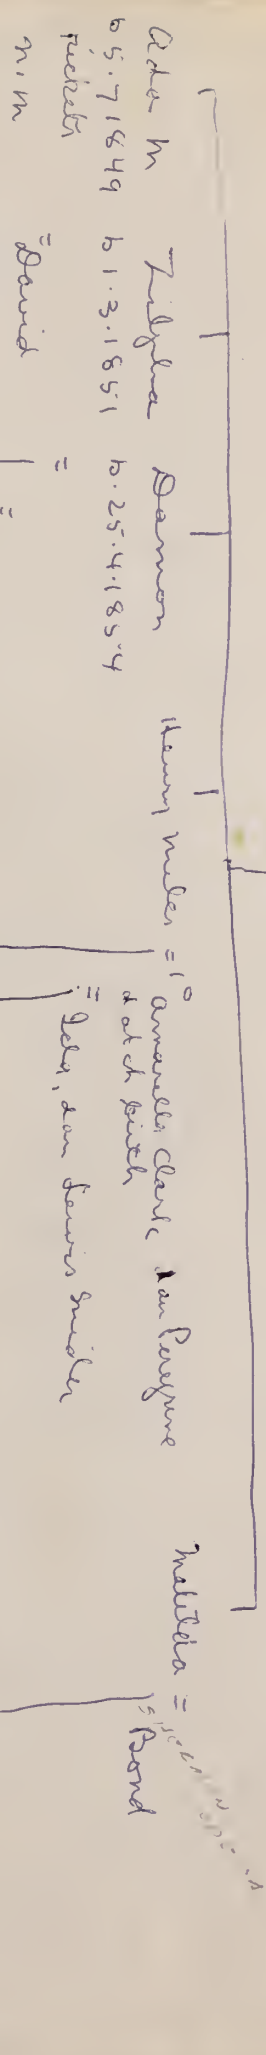 Ada M
b 5.7 1849
rickets
n.m
Zilpha
b 1.3.1851
= David
Damon
b. 25.4.1854
=
=
Henry Miles = 1° Amarella Clark dau Peregrine
d at ch birth
= Ida, dau Lewis Snider
Matilda =
= Bond